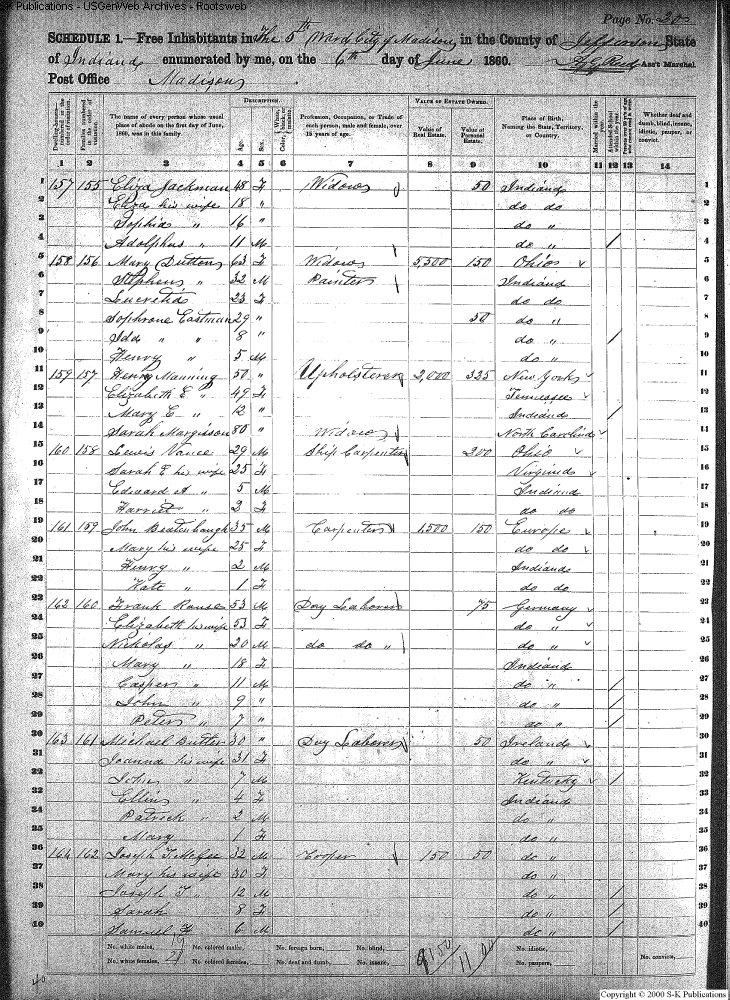 S-K Publications - USGenWeb Archives - Rootsweb
Page No. 20
SCHEDULE 1.—Free Inhabitants in The 5th Ward City of Madison in the County of Jefferson State
of Indiana enumerated by me, on the 6th day of June 1860. Ass't Marshal.
Post Office Madison
DESCRIPTION. VALUE OF ESTATE OWNED.
Dwelling-houses— numbered in the order of visitation. Families numbered in the order of visitation. The name of every person whose usual place of abode on the first day of June, 1860, was in this family. Age. Sex. Color, White, black, or mulatto. Profession, Occupation, or Trade of each person, male and female, over 15 years of age. Value of Real Estate. Value of Personal Estate. Place of Birth, Naming the State, Territory, or Country. Married within the year. Attended School within the year. Whether deaf and dumb, blind, insane, idiotic, pauper, or convict.
1 2 3 4 5 6 7 8 9 10 11 12 13 14
1 157 155 Eliza Jackman 48 F Widow 50 Indiana 1
2 his wife 18 " do do 2
3 Sophia " 16 " do " 3
4 Adolphus " 11 M do " / 4
5 158 156 Mary Dutton 63 F Widow 5,500 150 Ohio 5
6 Stephen " 32 M Painter Indiana 6
7 Lucretia 23 F do do 7
8 Sophrone Eastman 29 " 50 do " 8
9 Ida " " 8 " do " / 9
10 Henry " 5 M do " 10
11 159 157 Henry Manning 50 " Upholsterer 2,000 325 New York 11
12 Elizabeth E " 49 F Tennessee 12
13 Mary E " 12 " Indiana / 13
14 Sarah Margison 80 " Widow North Carolina 14
15 160 158 Lewis Vance 29 M Ship Carpenter 200 Ohio 15
16 Sarah E his wife 25 F Virginia 16
17 Edward A " 5 M Indiana 17
18 Harriet " 2 F do do 18
19 161 159 John 35 M Carpenter 1,500 150 Europe 19
20 Mary his wife 25 F do do 20
21 Henry " 2 M Indiana 21
22 Kate " 1 F do do 22
23 162 160 Frank Rause 53 M Day Laborer 75 Germany 23
24 Elizabeth his wife 53 F do " 24
25 Nickolas " 20 M do do " do " 25
26 Mary " 18 F Indiana 26
27 Casper " 11 M do " / 27
28 John " 9 " do " / 28
29 Peter " 7 " do " / 29
30 163 161 Michael Butler 30 " Day Laborer 50 Ireland 30
31 Joanna his wife 31 F do " 31
32 John " 7 M Kentucky / 32
33 Ellen " 4 F Indiana 33
34 Patrick " 2 M do " 34
35 Mary 1 F do " 35
36 164 162 Joseph T. McGee 32 M Cooper 150 50 do " 36
37 Mary his wife 30 F do " 37
38 Joseph T " 12 M do " / 38
39 Sarah 8 F do " / 39
40 Samuel H 6 M do " / 40
No. white males, 19 No. colored males, No. foreign born, No. blind, 9150 1100 No. idiotic,
No. white females, 21 No. colored females, No. deaf and dumb, No. insane, No. paupers, No. convicts,
40
Copyright © 2000 S-K Publications